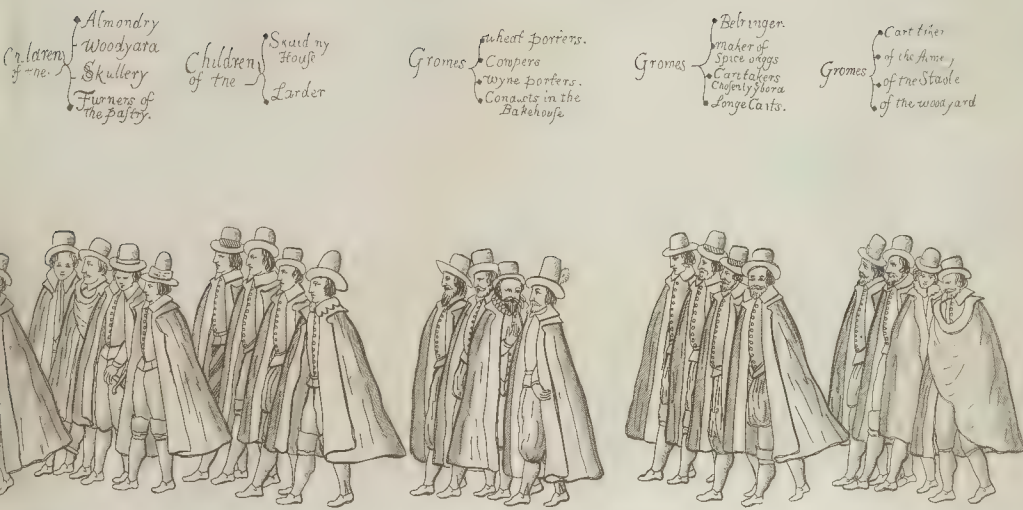 Children
of the
Almondry
Woodyara
Skullery
Furners of
the pastry.
Children
of the
House
Larder
Gromes
wheat porters.
Compers
wyne porters.
Conducts in the
Bakehouse
Gromes
Belringer.
maker of
Spice baggs
Cartakers
Longe Carts.
Gromes
Cart
of the
of the Stable
of the woodyard